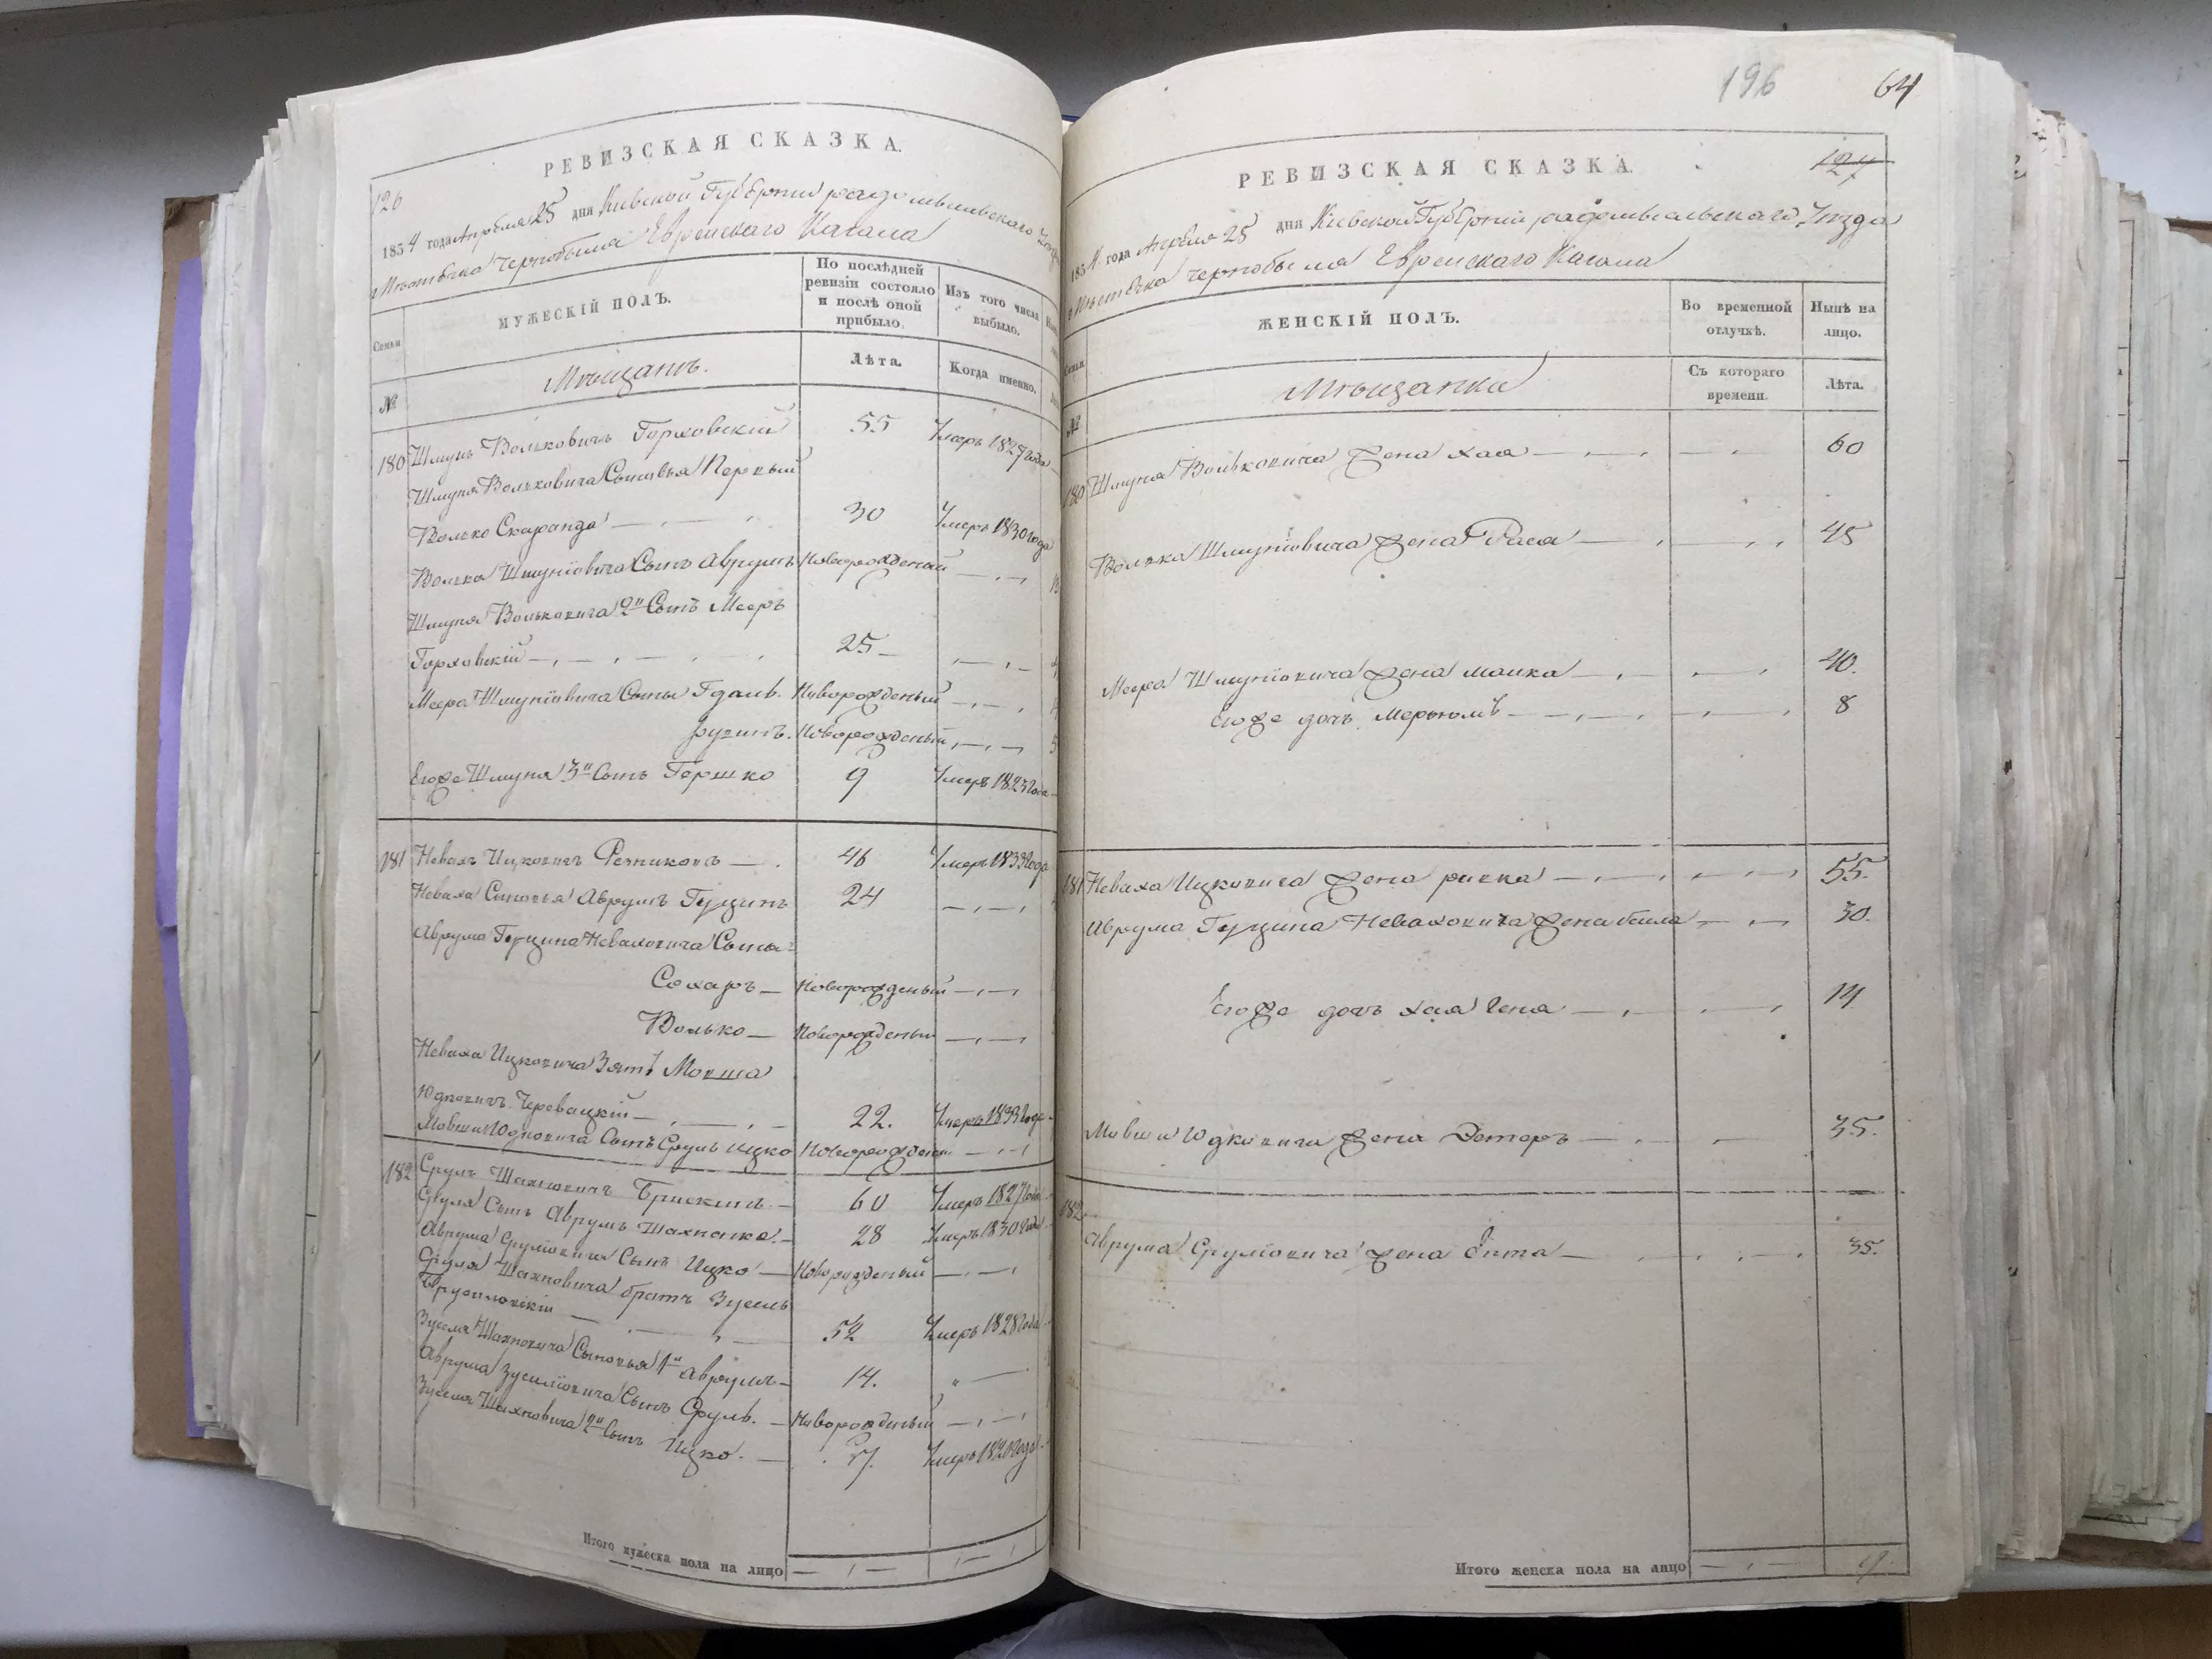 РЕВИЗСКАЯ СКАЗКА.
126
1834 года Апреля 25 дня Киевской Губернии радомысльскаго
Местечка Чернобыля Еврейскаго Кагала
Семьи
МУЖЕСКІЙ ПОЛЪ.
По послѣдней ревизіи состояло и послѣ оной прибыло.
Изъ того числа выбыло.
№
Мѣщанъ.
Лѣта.
Когда именно.
180 Шмунь Вольковичъ Горловскій 55 Умеръ 1827 года
Шмуня Вольковича Сыновья Первый
Волько 30 Умеръ 1830 года
Волька Шмуніовича Сынъ Аврумъ Новорожденый
Шмуня Вольковича 2й Сынъ Мееръ
Горловскій 25
Меера Шмуніовича Сыны Новорожденый
Новорожденый
Егоже Шмуня 3й Сынъ Гершко 9 Умеръ 1823 года
181 Невахъ Ицковичъ Резниковъ 46 Умеръ 1833 года
Неваха Сыновья Аврумъ 24
Аврума Неваховича Сыны
Сохаръ Новорожденый
Волько Новорожденый
Неваха Ицковича Зять Мовша
Юдковичъ Черевацкій 22. Умеръ 1833 года
Мовши Юдковича Сынъ Сруль Ицко Новорожденый
182 Сруль Шахновичъ 60 Умеръ 1827 года
Сруля Сынъ Аврумъ Шахненко 28 Умеръ 1830 года
Аврума Сруліовича Сынъ Ицко Новорожденый
Сруля Шахновича братъ Зусель
52 Умеръ 1828 года
Зуселя Шахновича Сыновья 1й Аврумъ 14.
Аврума Зуселіовича Сынъ Сруль. Новорожденый
Зуселя Шахновича 2й Сынъ Ицко. 7. Умеръ года
Итого мужеска пола на лицо
196
64
РЕВИЗСКАЯ СКАЗКА.
127
1834 года Апреля 25 дня Киевской Губернии радомысльскаго Уезда
Местечка Чернобыля Еврейскаго Кагала
Семьи
ЖЕНСКІЙ ПОЛЪ.
Во временной отлучкѣ.
Нынѣ на лицо.
№
Мѣщанки
Съ котораго времени.
Лѣта.
180 Шмуня Вольковича жена хая 60
Волька Шмуніовича жена Раса 45
Меера Шмуніовича жена малка 40.
Егоже дочь Мерьюмъ 8
181 Неваха Ицковича жена ривка 55.
Аврума Неваховича жена бейла 30.
Егоже дочь хая 14
Мовши Юдковича жена Эстеръ 35.
182
Аврума Сруліовича жена Ента 35.
Итого женска пола на лицо 9.